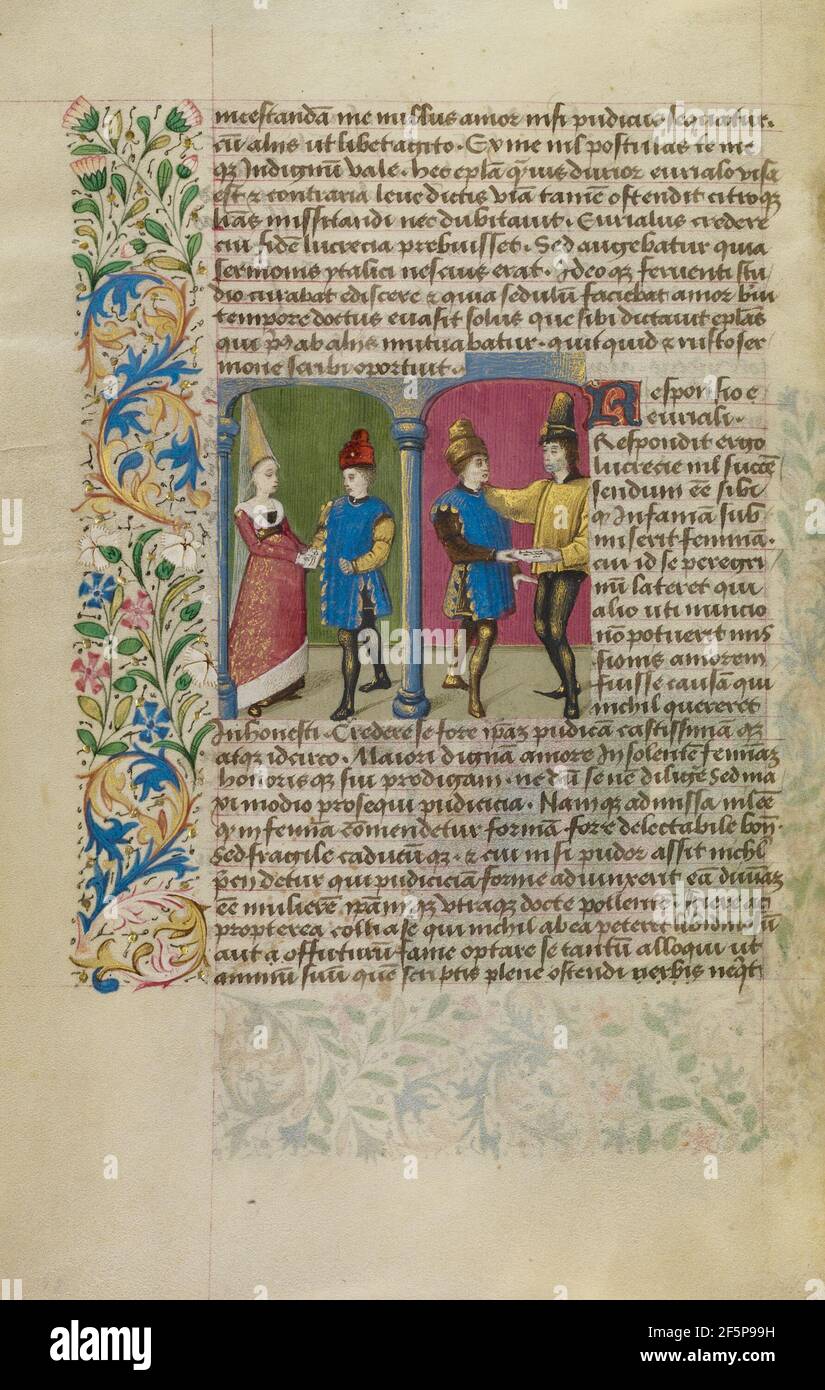 incestandam me nullus amor nisi pudicus sequatur.
cū alijs ut libet agito. Ex me nil postulas te me
qz Indignum vale. hec epl̄a qͣuis durior eurialo visa
est & contraria leue dictis viā tamē ostendit citroqz
lrās missitandi nec dubitauit. Eurialus credere
cui fidē lucrecia prebuisset. Sed augebatur quia
sermonis ytalici nescius erat. Ideoqz feruenti stu
dio curabat ediscere & quia sedulū faciebat amor breui
tempore doctus euasit solus que sibi dictauit epl̄as
qui prius ab alijs mutuabatur. quitquid & rusto ser
mone scribi oportuit.
Responsio e
euriali.
Respondit ergo
lucrecie nil succē
sendum eē sibi
q Infamā sub
miserit feminā.
cui id se peregri
nū lateret qui
alio uti nuncio
nō potuerit mis
sionis amorem
fuisse causā qui
nichil quereret
Inhonesti. Credere se fore ipāz pudicā castissimā qz
atqz idcirco. Maiori dignā amore Insolentē feminaz
honorisqz sui prodigam. nedū se nō diligē Sed ma
xi modio prosequi pudicicia. Namqz admissa nil eē
q in femīa cōmendetur formā fore delectabile bon.
Sed fragile caducūqz. & cui nisi pudor assit nichil
pendetur qui pudiciciā forme adiunxerit eā diuinaz
eē mulierē ipāmqz vtraqz docte pollente
propterea colli a se qui nichil ab ea peteret
aut a offuturū fame optare se tantū alloqui ut
animū suū quē scriptis plene ostendi verbis neqͥt
alamy
Image ID: 2F5P99H
www.alamy.com